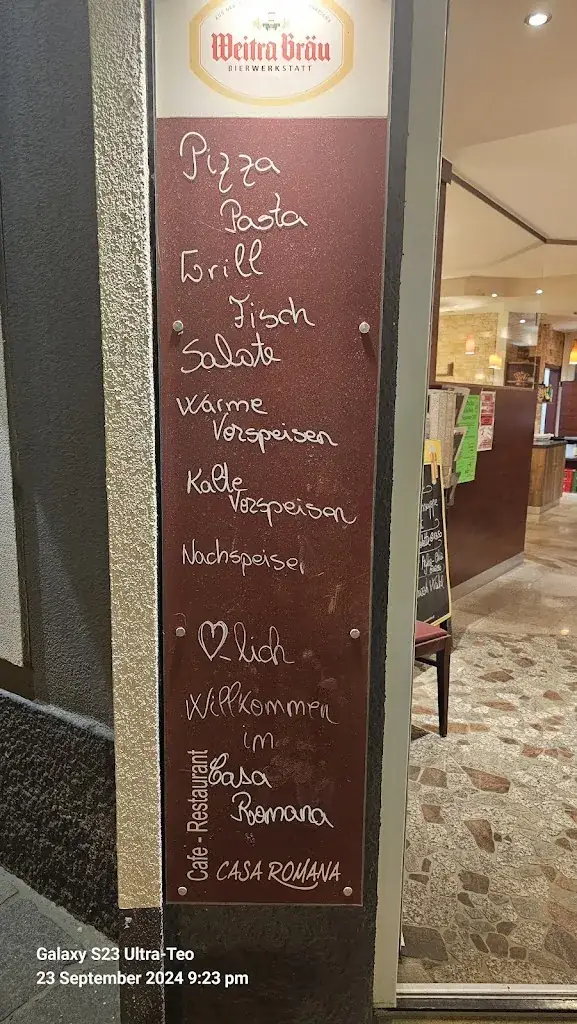 Weitra Bräu
BIERWERKSTATT
Pizza
Pasta
Grill
Fisch
Salate
Warme
Vorspeisen
Kalte
Vorspeisen
Nachspeisen
♡lich
Willkommen
im
Casa
Romana
Cafe - Restaurant
CASA ROMANA
Galaxy S23 Ultra-Teo
23 September 2024 9:23 pm